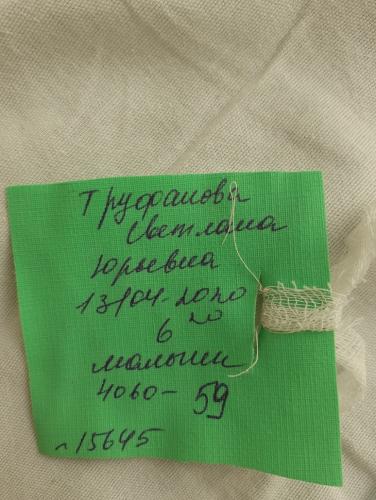 Труфанова
Светлана
Юрьевна
13/04-2020
20
6
малыши
4060- 59
~15645